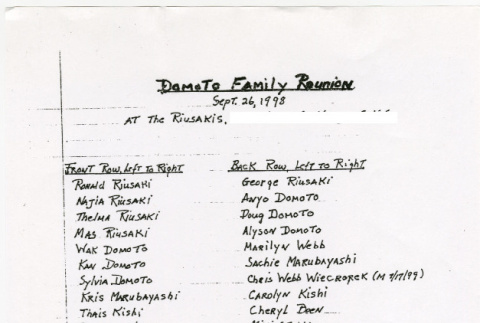 Domoto Family Reunion
Sept. 26, 1998
AT The Riusakis,
Front Row, Left to Right
Back Row, Left to Right
Ronald Riusaki
George Riusaki
Najia Riusaki
Anyo Domoto
Thelma Riusaki
Doug Domoto
Mas Riusaki
Alyson Domoto
Wak Domoto
Marilyn Webb
Kan Domoto
Sachie Marubayashi
Sylvia Domoto
Chris Webb Wiecrorck (M 7/17/99)
Kris Marubayashi
Carolyn Kishi
Thais Kishi
Cheryl